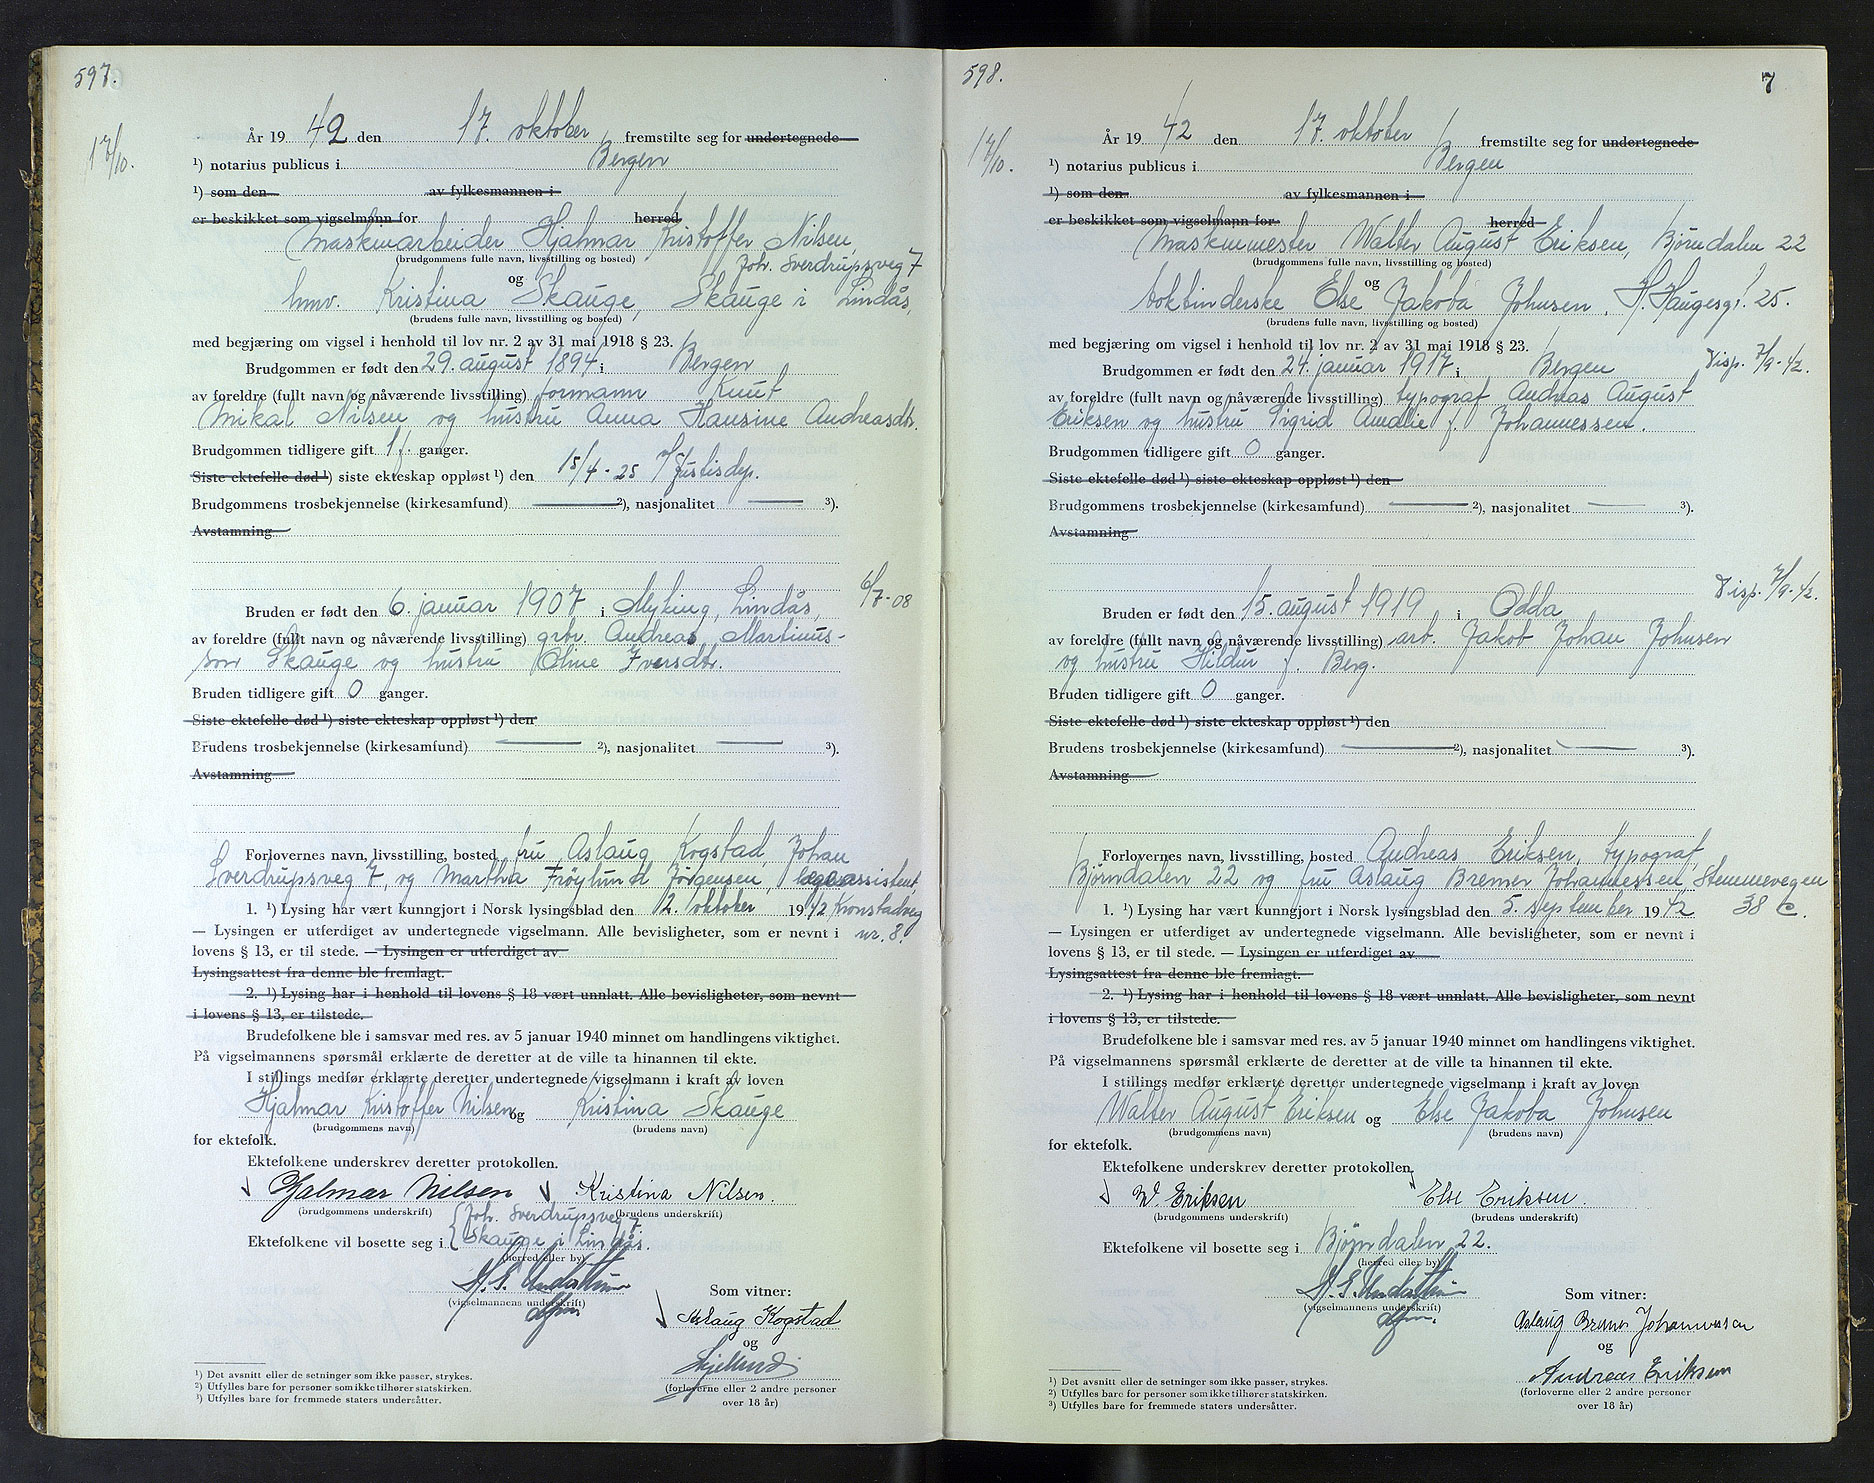 597.
17/10.
År 19 42 den 17. oktober fremstilte seg for undertegnede
¹) notarius publicus i Bergen
¹) som den av fylkesmannen i
er beskikket som vigselmann for herred
Maskinarbeider Hjalmar Kristoffer Nilsen,
(brudgommens fulle navn, livsstilling og bosted) Joh. Sverdrupsveg 7
og
hmv. Kristina Skauge, Skauge i Lindås,
(brudens fulle navn, livsstilling og bosted)
med begjæring om vigsel i henhold til lov nr. 2 av 31 mai 1918 § 23.
Brudgommen er født den 29. august 1894 i Bergen
av foreldre (fullt navn og nåværende livsstilling) formann Knut
Mikal Nilsen og hustru Anna Hansine Andreasdtr.
Brudgommen tidligere gift 1 f. ganger.
Siste ektefelle død ¹) siste ekteskap oppløst ¹) den 15/4-25 v/Justisdep.
Brudgommens trosbekjennelse (kirkesamfund) ²), nasjonalitet ³).
Avstamning
Bruden er født den 6. januar 1907 i Myking, Lindås, 6/7-08
av foreldre (fullt navn og nåværende livsstilling) grbr. Andreas Martinus-
son Skauge og hustru Oline Iversdtr.
Bruden tidligere gift 0 ganger.
Siste ektefelle død ¹) siste ekteskap oppløst ¹) den
Brudens trosbekjennelse (kirkesamfund) ²), nasjonalitet ³).
Avstamning
Forlovernes navn, livsstilling, bosted fru Aslaug Kogstad Johan
Sverdrupsveg 7, og Martha Frøylund Jørgensen assistent
1. ¹) Lysing har vært kunngjort i Norsk lysingsblad den 2. oktober 1942 Kronstadveg
— Lysingen er utferdiget av undertegnede vigselmann. Alle bevisligheter, som er nevnt i nr. 8.
lovens § 13, er til stede. — Lysingen er utferdiget av
Lysingsattest fra denne ble fremlagt.
2. ¹) Lysing har i henhold til lovens § 18 vært unnlatt. Alle bevisligheter, som nevnt
i lovens § 13, er tilstede.
Brudefolkene ble i samsvar med res. av 5 januar 1940 minnet om handlingens viktighet.
På vigselmannens spørsmål erklærte de deretter at de ville ta hinannen til ekte.
I stillings medfør erklærte deretter undertegnede vigselmann i kraft av loven
Hjalmar Kristoffer Nilsen og Kristina Skauge
(brudgommens navn) (brudens navn)
for ektefolk.
Ektefolkene underskrev deretter protokollen.
Hjalmar Nilsen Kristina Nilsen.
(brudgommens underskrift) (brudens underskrift)
Joh. Sverdrupsveg 7
Ektefolkene vil bosette seg i Skauge i Lindås.
(herred eller by)
(vigselmannens underskrift)
Som vitner:
Aslaug Kogstad
og
(forloverne eller 2 andre personer
over 18 år)
¹) Det avsnitt eller de setninger som ikke passer, strykes.
²) Utfylles bare for personer som ikke tilhører statskirken.
³) Utfylles bare for fremmede staters undersåtter.
598.
7
17/10.
År 19 42 den 17. oktober fremstilte seg for undertegnede
¹) notarius publicus i Bergen
¹) som den av fylkesmannen i
er beskikket som vigselmann for herred
Maskinmester Walter August Eriksen, Bjørndalen 22
(brudgommens fulle navn, livsstilling og bosted)
og
bokbinderske Else Jakoba Johnsen, H. Haugesgt. 25.
(brudens fulle navn, livsstilling og bosted)
med begjæring om vigsel i henhold til lov nr. 2 av 31 mai 1918 § 23.
Brudgommen er født den 24. januar 1917 i Bergen Disp. 7/9-42.
av foreldre (fullt navn og nåværende livsstilling) typograf Andreas August
Eriksen og hustru Sigrid Amalie f. Johannessen.
Brudgommen tidligere gift 0 ganger.
Siste ektefelle død ¹) siste ekteskap oppløst ¹) den
Brudgommens trosbekjennelse (kirkesamfund) ²), nasjonalitet ³).
Avstamning
Bruden er født den 15. august 1919 i Odda Disp. 7/9-42.
av foreldre (fullt navn og nåværende livsstilling) arb. Jakob Johan Johnsen
og hustru Hildur f. Berg.
Bruden tidligere gift 0 ganger.
Siste ektefelle død ¹) siste ekteskap oppløst ¹) den
Brudens trosbekjennelse (kirkesamfund) ²), nasjonalitet ³).
Avstamning
Forlovernes navn, livsstilling, bosted Andreas Eriksen, typograf,
Bjørndalen 22 og fru Aslaug Bremer Johannessen Stemmevegen
1. ¹) Lysing har vært kunngjort i Norsk lysingsblad den 5. september 1942 38 c.
— Lysingen er utferdiget av undertegnede vigselmann. Alle bevisligheter, som er nevnt i
lovens § 13, er til stede. — Lysingen er utferdiget av
Lysingsattest fra denne ble fremlagt.
2. ¹) Lysing har i henhold til lovens § 18 vært unnlatt. Alle bevisligheter, som nevnt
i lovens § 13, er tilstede.
Brudefolkene ble i samsvar med res. av 5 januar 1940 minnet om handlingens viktighet.
På vigselmannens spørsmål erklærte de deretter at de ville ta hinannen til ekte.
I stillings medfør erklærte deretter undertegnede vigselmann i kraft av loven
Walter August Eriksen og Else Jakoba Johnsen
(brudgommens navn) (brudens navn)
for ektefolk.
Ektefolkene underskrev deretter protokollen.
W. Eriksen Else Eriksen.
(brudgommens underskrift) (brudens underskrift)
Ektefolkene vil bosette seg i Bjørndalen 22.
(herred eller by)
(vigselmannens underskrift)
Som vitner:
Aslaug Bremer Johannessen
og
Andreas Eriksen
(forloverne eller 2 andre personer
over 18 år)
¹) Det avsnitt eller de setninger som ikke passer, strykes.
²) Utfylles bare for personer som ikke tilhører statskirken.
³) Utfylles bare for fremmede staters undersåtter.